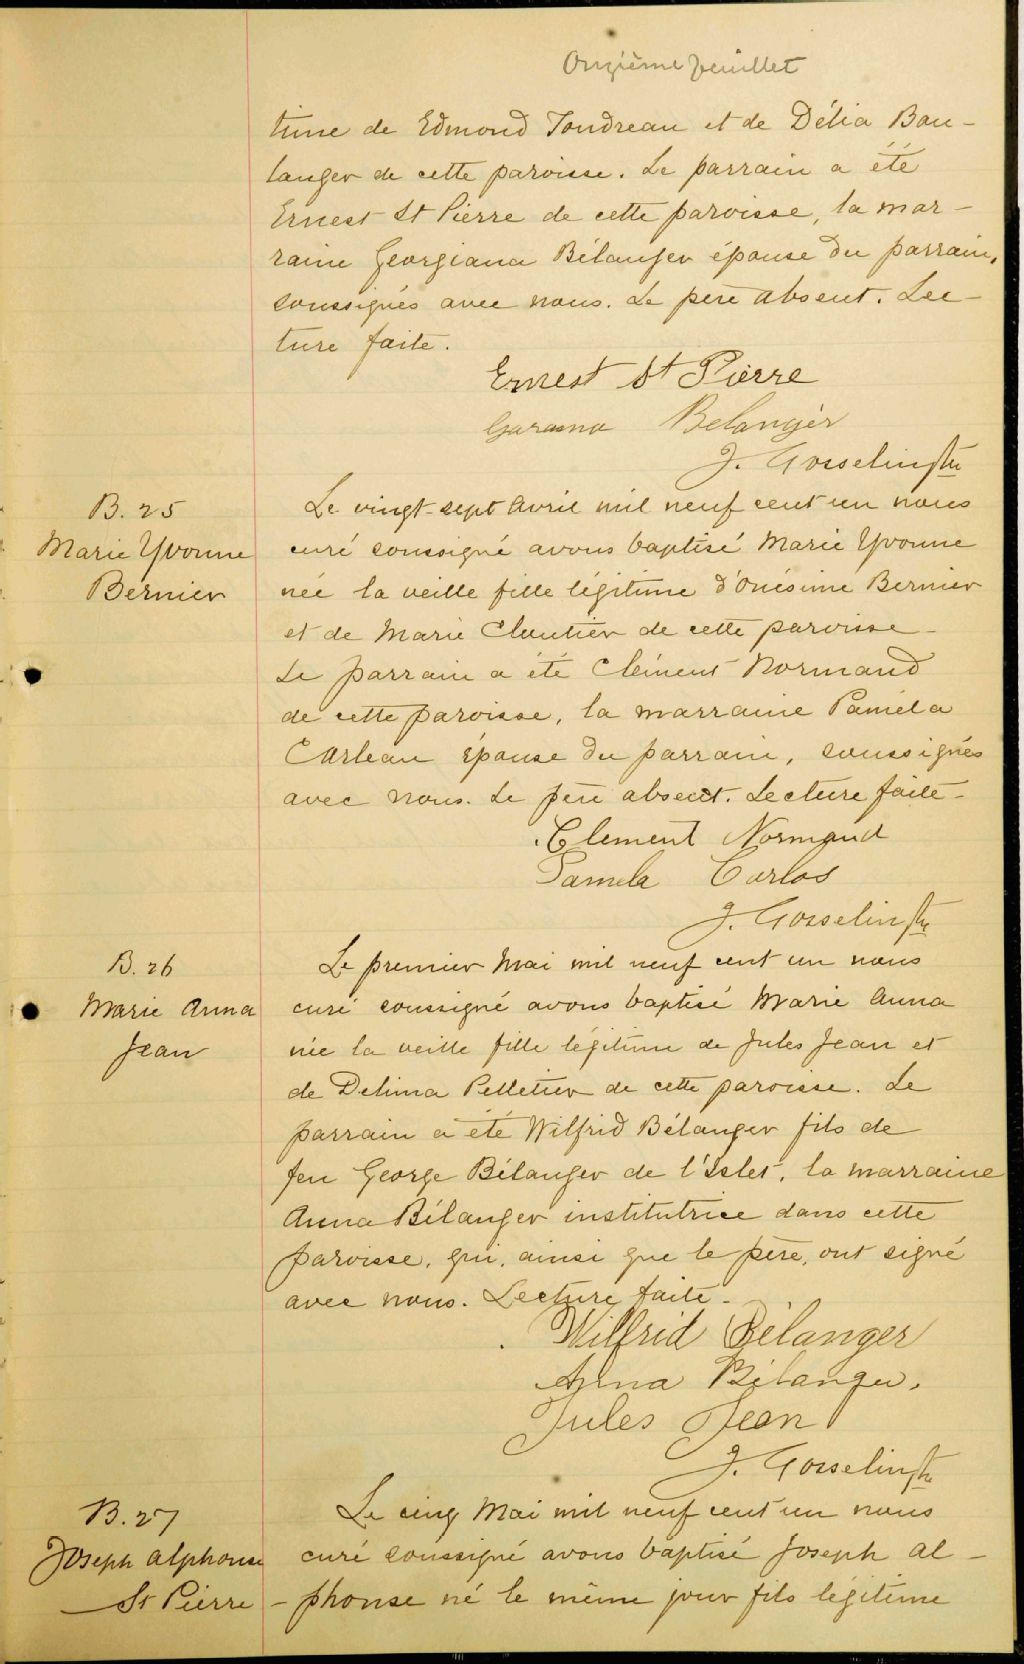 Onzième feuillet
time de Edmond Tondreau et de Délia Bou-
langer de cette paroisse. Le parrain a été
Ernest St Pierre de cette paroisse, la mar-
raine Georgiana Bélanger épouse du parrain,
soussignés avec nous. Le père absent. Lec-
ture faite.
Ernest St Pierre
Belanger
J. Gosselin Ptre
B. 25
Marie Yvonne
Bernier
Le vingt-sept Avril mil neuf cent un nous
curé soussigné avons baptisé Marie Yvonne
née la veille fille légitime d'Onésime Bernier
et de Marie Cloutier de cette paroisse-
Le parrain a été Clément Normand
de cette paroisse, la marraine Paméla
Carleau épouse du parrain, soussignés
avec nous. Le père absent. Lecture faite-
Clement Normand
Pamela Carlos
J. Gosselin Ptre
B. 26
Marie Anna
Jean
Le premier Mai mil neuf cent un nous
curé soussigné avons baptisé Marie Anna
née la veille fille légitime de Jules Jean et
de Delima Pelletier de cette paroisse. Le
parrain a été Wilfrid Bélanger fils de
feu George Bélanger de l'Islet, la marraine
Anna Bélanger institutrice dans cette
paroisse, qui, ainsi que le père, ont signé
avec nous. Lecture faite-
Wilfrid Bélanger
Anna Bélanger.
Jules Jean
J. Gosselin Ptre
B. 27
Joseph Alphonse
St Pierre
Le cinq Mai mil neuf cent un nous
curé soussigné avons baptisé Joseph Al-
-phonse né le même jour fils légitime